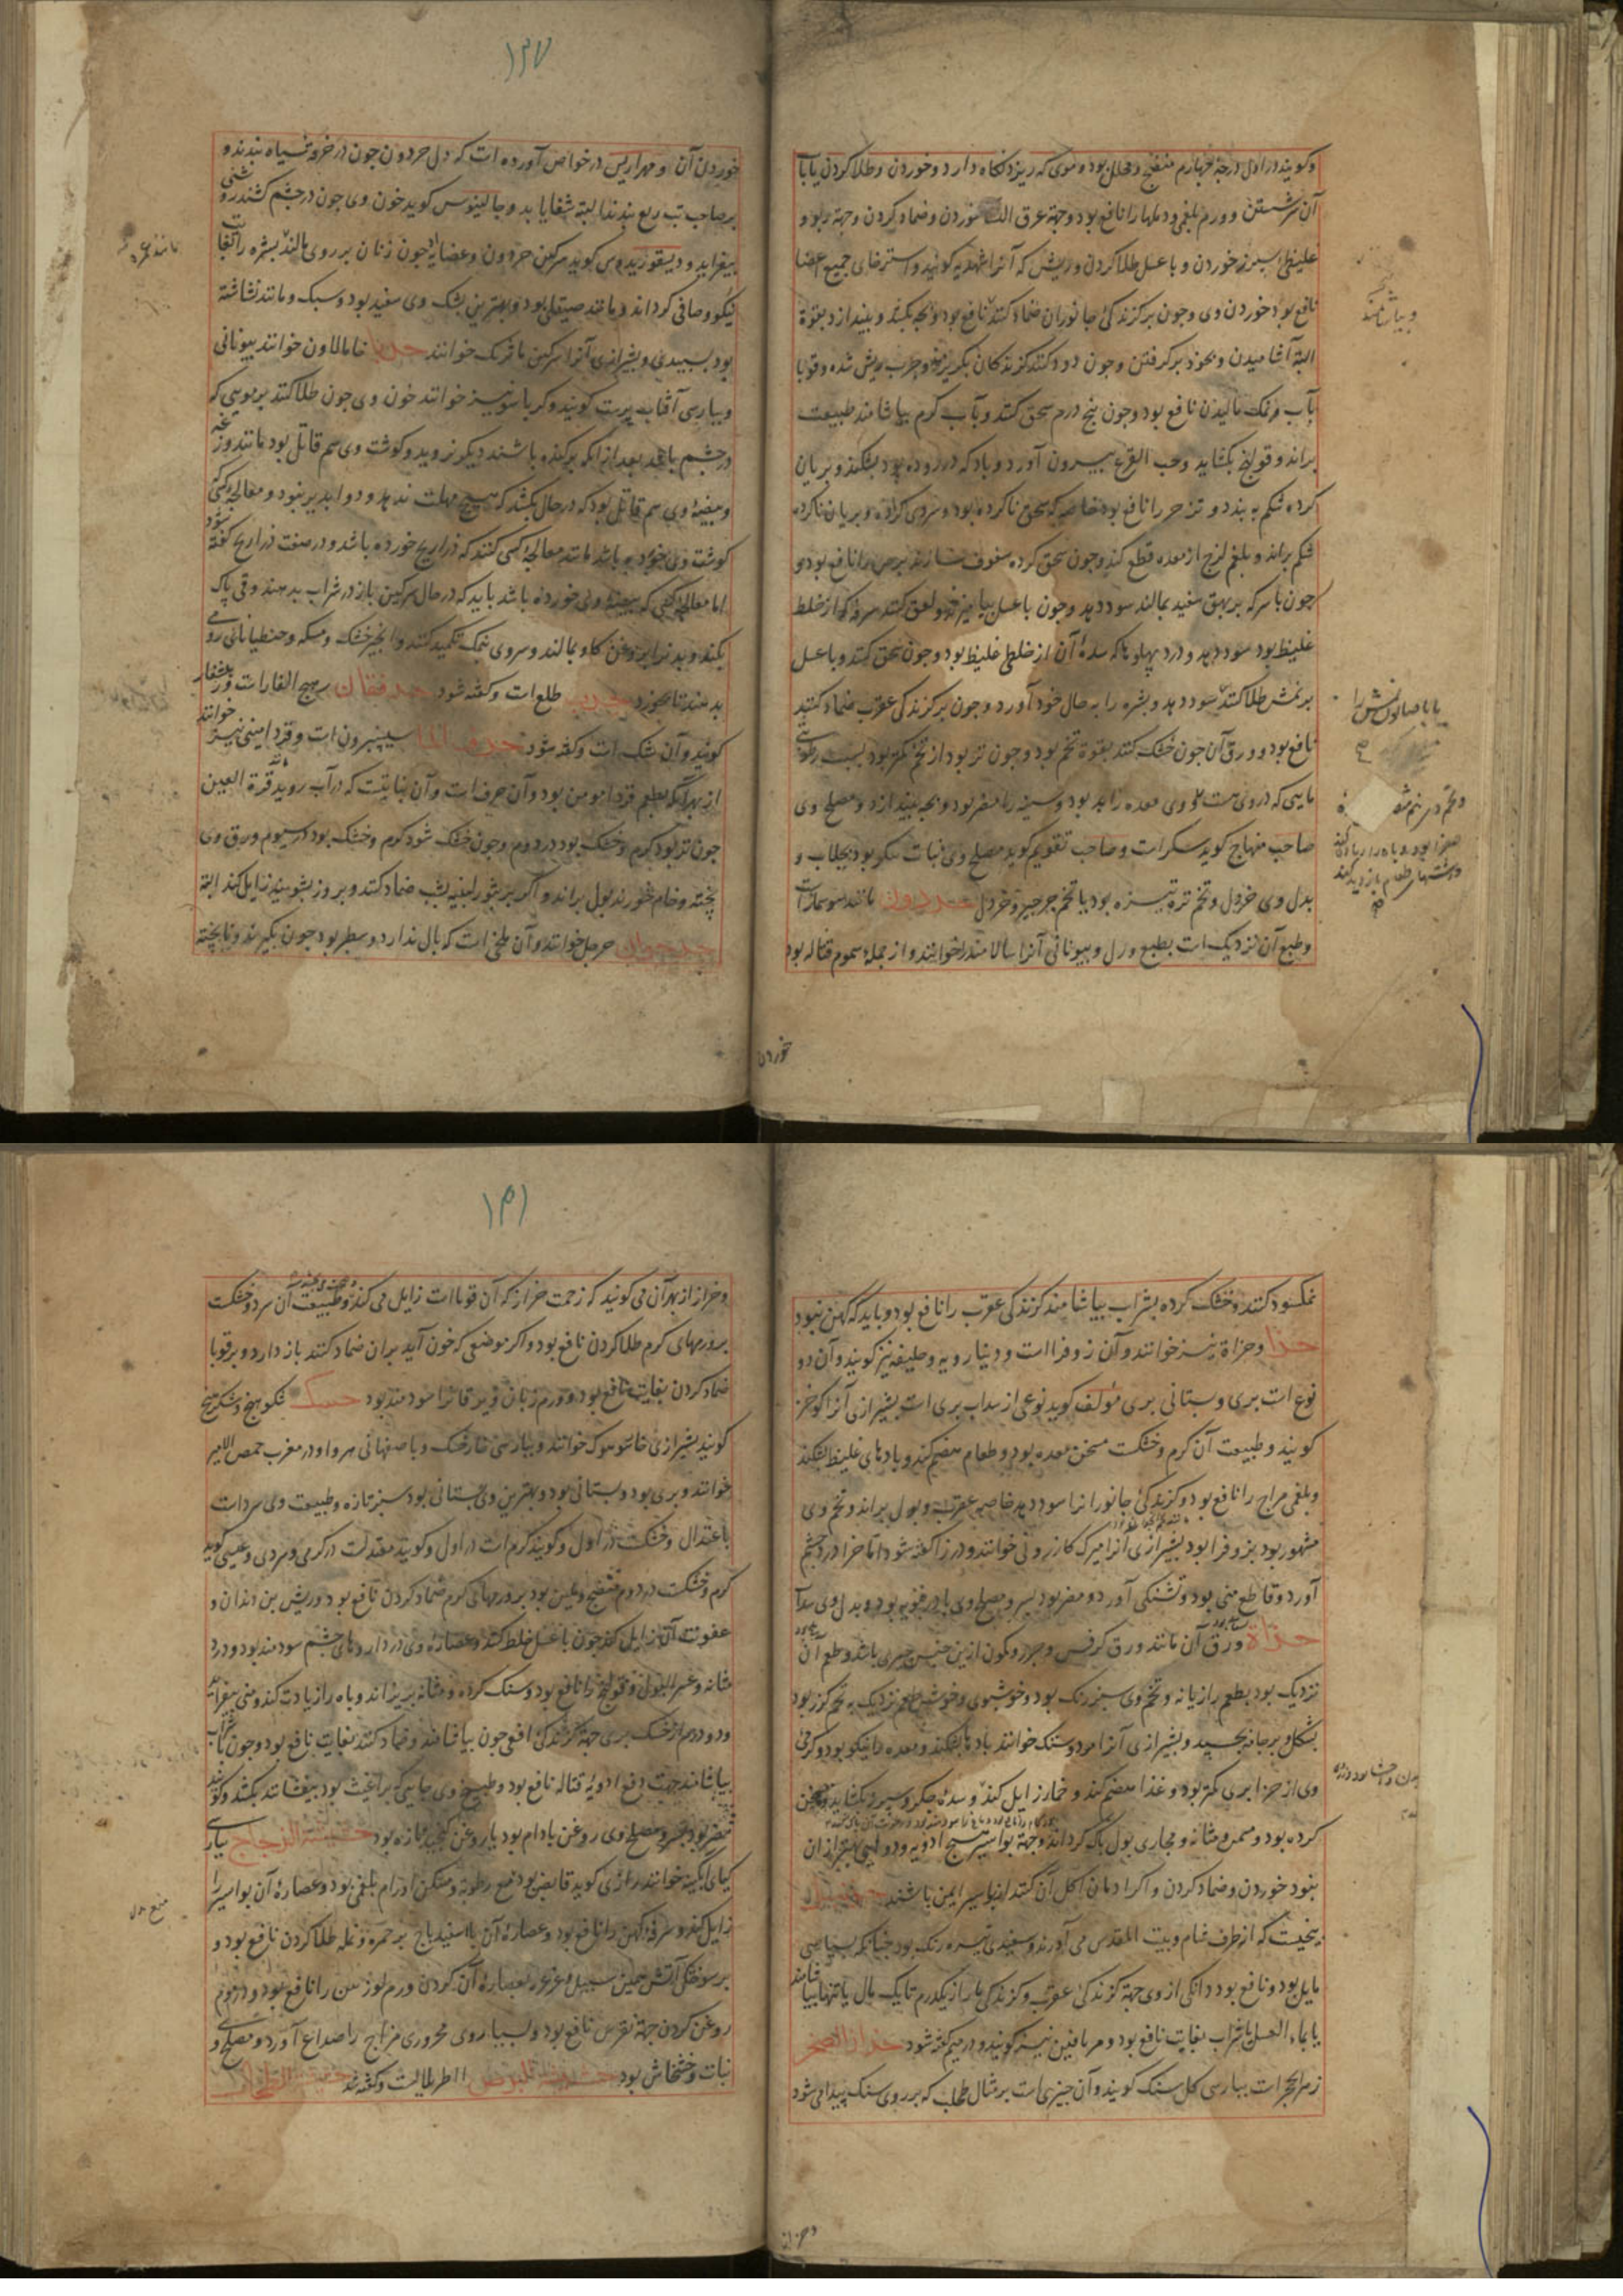 وکویند در اول درجهٔ چهارم منضج و محلل بود و موی که ریزد نکاه دارد و خوردن و طلا کردن یا بآب
آن سرشستن و ورم بلغمی و دملها را نافع بود و جهة عرق النسا خوردن و ضماد کردن و جهة ربو و
غلیظی سپرز خوردن و با عسل طلا کردن و ریش که آنرا شهدیه کویند و استرخای جمیع اعضا
نافع بود خوردن وی و چون بر کزندکی جانوران ضماد کنند نافع بود و بچه بکشد و بیندازد بقوة
البته آشامیدن و بخود برکرفتن و چون دود کنند کزندکان بکریزند و جرب ریش شده و قوبا
بآب و نمک مالیدن نافع بود و چون پنج درم سحق کنند و بآب کرم بیاشامند طبیعت
براند و قولنج بکشاید و حب القرع بیرون آورد و باد که در روده بود بشکند و بریان
کرده شکم به بندد و تزحر را نافع بود خاصه که سحق ناکرده بود و بریان ناکرده
شکم براند و بلغم لزج از معده قطع کند و چون سحق کرده سفوف سازند برص را نافع بود و
چون با سرکه بر بهق سفید بمالند سود دهد و چون با عسل بیامیزند و لعق کنند سرفه که از خلط
غلیظ بود سود دهد و درد پهلو که سدهٔ آن از خلطی غلیظ بود و چون سحق کنند و با عسل
بر نمش طلا کنند سود دهد و بشره را به حال خود آورد و چون بر کزندکی عقرب ضماد کنند
نافع بود و ورق آن چون خشک کنند بقوة تخم بود و چون تر بود از تخم کمتر بود بسبب رطوبتی
مایی که در وی هست و وی معده را بد بود و سینه را مضر بود و بچه بیندازد و مصلح وی
صاحب منهاج کوید سکر است و صاحب تقویم کوید مصلح وی نبات مکرر بود بجلاب و
بدل وی خردل و تخم تره تیزه بود یا تخم جرجیر و خردل حردون مانند سوسمار است
و طبع آن نزدیک است بطبع ورل و بیونانی آنرا سالامندرا خوانند و از جملهٔ سموم قتاله بود
و بیاشامند
یا با صابون نمش را
خوردن
۱۳۷
خوردن آن و مهراریس در خواص آورده است که دل حردون چون در خرقهٔ سیاه بندند و
بر صاحب تب ربع بندند البته شفا یابد و جالینوس کوید خون وی چون در چشم کشند روشنی
بیفزاید و دیسقوریدوس کوید سرکین حردون چون زنان بر روی مالند بشره را بغایت
نیکو و صافی کرداند و مانند صیقلی بود و بهترین پشک وی سفید بود و سبک و مانند نشاسته
بود بسپیدی و بشیرازی آنرا سرکین ماترنک خوانند حربا خامالاون خوانند بیونانی
و بپارسی آفتاب پرست کویند و کرباسو نیز خوانند خون وی چون طلا کنند بر مویی که
در چشم باشد بعد از آنکه برکنده باشند دیکر نروید و کوشت وی سم قاتل بود مانند وزغه
و بیضهٔ وی سم قاتل بود که در حال بکشد که هیچ مهلت ندهد و دوا پذیر نبود و معالجهٔ کسی که
کوشت وی خورده باشد مانند معالجهٔ کسی کنند که ذراریح خورده باشد و در صفت ذراریح کفته شود
اما معالجهٔ کسی که بیضهٔ وی خورده باشد باید که در حال سرکین باز در شراب بدهند و قی پاک
بکند و بدن را بروغن کاو بمالند و سر وی بنمک تکمید کنند و انجیر خشک و مسکه و جنطیانای رومی
بدهند تا بخورد طلع است و کفته شود رهج الفار است
کویند و آن شک است و کفته شود حرف الما سیسنبرون است و قردامینی نیز خوانند
از بهر آنکه بطعم قردامومن بود و آن حرف است و آن نباتیست که در آب روید قرة العین
چون تر بود کرم و خشک بود در دوم و چون خشک شود کرم و خشک بود در سیوم و ورق وی
پخته و خام خورند بول براند و اکر بر بثور لبنیه بشب ضماد کنند و بروز بشویند زایل کند البته
حرجوان حرجل خوانند و آن ملخی است که بال ندارد و سطبر بود چون بکیرند و ناپخته
نمکسود کنند و خشک کرده بشراب بیاشامند کزندکی عقرب را نافع بود و باید که کهن نبود
حزا و حزاة نیز خوانند و آن زوفرا است و دینارویه و حلیفه نیز کویند و آن دو
نوع است بری و بستانی بری مؤلف کوید نوعی از سداب بری است بشیرازی آنرا
کویند و طبیعت آن کرم و خشکست مسخن معده بود و طعام هضم کند و بادهای غلیظ بشکند
و بلغمی مزاج را نافع بود و کزندکی جانورانرا سود دهد خاصه عقرب و بول براند و تخم وی
مشهور بود بزوفرا بود بشیرازی آنرا میرک کازرونی خوانند و در زا کفته شود اما حزا درد چشم
آورد و قاطع منی بود و تشنکی آورد و مضر بود بسر و مصلح وی بادرنجبویه بود و بدل وی سداب
حزاة ورق آن مانند ورق کرفس و جزر و کون ازین جنس چیزی باشد و طعم آن
نزدیک بود بطعم رازیانه و تخم وی سبز رنک بود و خوشبوی و خوش طعم نزدیک به تخم کزر بود
بشکل و بر جامه بچسپد و بشیرازی آنرا مودوستک خوانند بادها بشکند و معده را نیکو بود و کرمی
وی از حزا بری کمتر بود و غذا هضم کند و خمار زایل کند و سدهٔ جکر و سپرز بکشاید و مسخن
کرده بود و مسمن و مثانه و مجاری بول پاک کرداند و جهة بواسیر هیچ ادویه و دوایی بهتر از آن
نبود خوردن و ضماد کردن و اکر ادمان اکل آن کنند از بواسیر ایمن باشند
بیخیست که از طرف شام و بیت المقدس می آورند و سفیدی تیره رنک بود چنانکه بسیاهی
مایل بود و نافع بود دانکی از وی جهة کزندکی عقرب و کزندکی مار از یکدرم تا یک مثقال یا تنها بیاشامند
یا بماء العسل یا شراب بغایت نافع بود و مریافین نیز کویند و در میم کفته شود حزاز الصخر
زهر الحجر است بپارسی کل سنک کویند و آن چیزی است بر مثال طحلب که بر روی سنک پیدا می شود
۱۳۱
و حزاز از بهر آن می کویند که زحمت حزاز که آن قوبا است زایل می کند و طبیعت آن سرد و خشکست
بر ورمهای کرم طلا کردن نافع بود و اکر موضعی که خون آید بر آن ضماد کنند باز دارد و بر قوبا
ضماد کردن بغایت نافع بود و ورم زبان و یرقانرا سودمند بود حسک شکوهنج و شکرهنج
کویند بشیرازی خاسوسوک خوانند و بپارسی خارخسک و باصفهانی هروا و در مغرب حمص الامیر
خوانند و بری بود و بستانی بود و بهترین وی بستانی بود سبز تازه و طبیعت وی سرد است
باعتدال و خشکست در اول و کویند کرم است در اول و کویند معتدلست در کرمی و سردی و عیسی کوید
کرم و خشکست در دوم منضج و ملین بود بر ورمهای کرم ضماد کردن نافع بود و ریش بن دندان و
عفونت آن زایل کند چون با عسل خلط کنند و عصارهٔ وی در داروهای چشم سودمند بود و درد
مثانه و عسر البول و قولنج را نافع بود و سنک کرده و مثانه بریزاند و باه را زیادت کند و منی بیفزاید
و دو درم از خسک بری جهة کزندکی افعی چون بیاشامند و ضماد کنند بغایت نافع بود و چون با شراب
بیاشامند جهت دفع ادویهٔ قتاله نافع بود و طبیخ وی جایی که براغیث بود بیفشانند بکشد و کویند
مضر بود بسر و مصلح وی روغن بادام بود یا روغن کنجد تازه بود حشیشة الزجاج بپارسی
کیاه آبکینه خوانند رازی کوید قابض بود مع رطوبة و مسکن اورام بلغمی بود و عصارهٔ آن بواسیر را
زایل کند و سرفهٔ کهن را نافع بود و عصارهٔ آن با اسفیداج بر حمره و نمله طلا کردن نافع بود و
بر سوختکی آتش همین سبیل و غرغره بعصارهٔ آن کردن ورم لوزتین را نافع بود و در موم
روغن کردن جهة نقرس نافع بود و بسیار وی محروری مزاج را صداع آورد و مصلح وی
نبات و خشخاش بود اطرمالیست و کفته شد حشیشة الطحال